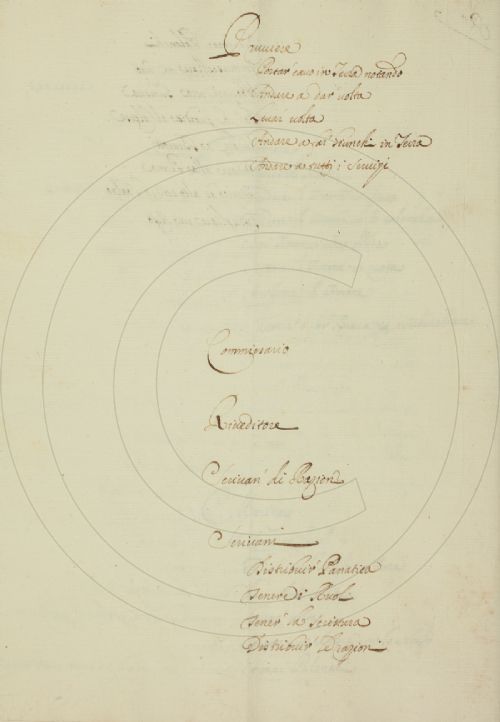 Proviere
Portar' cavo in Terra notando
Andare a dar volta
Levar volta
Andare a in Terra
Andare a tutti i Servizi
Commissario
Riveditore
Scrivan' di Razion
Scrivani
Distribuir' Panatica
Tenere di Ruol
Tener' la Scrittura
Distribuir' le razioni